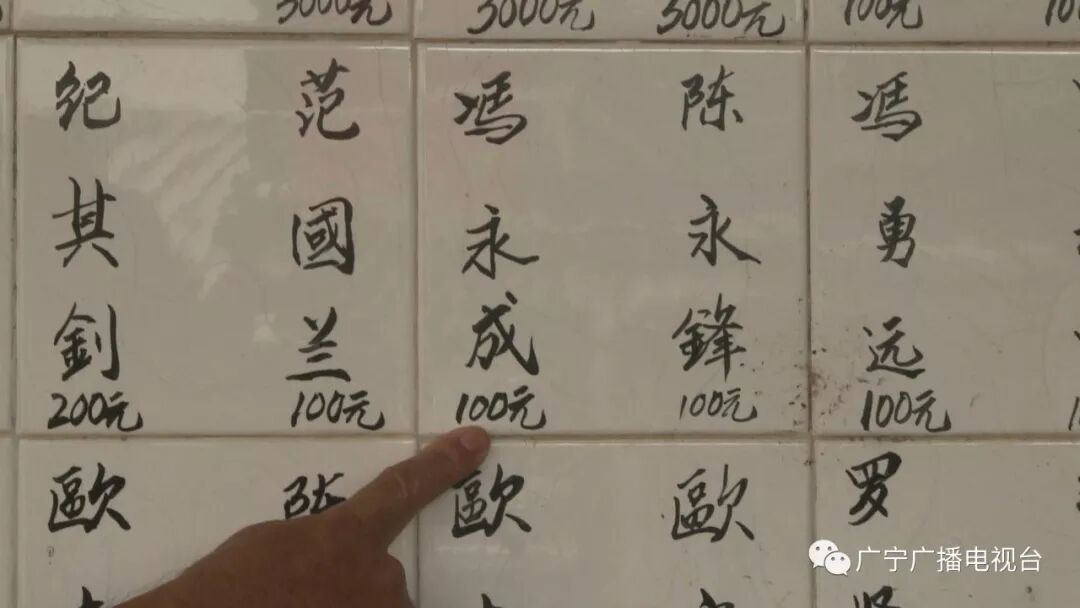 3000元
3000元
3000元
100元
纪其釗
200元
范國兰
100元
馮永成
100元
陈永鋒
100元
馮勇远
100元
歐
歐
歐
罗
广宁广播电视台